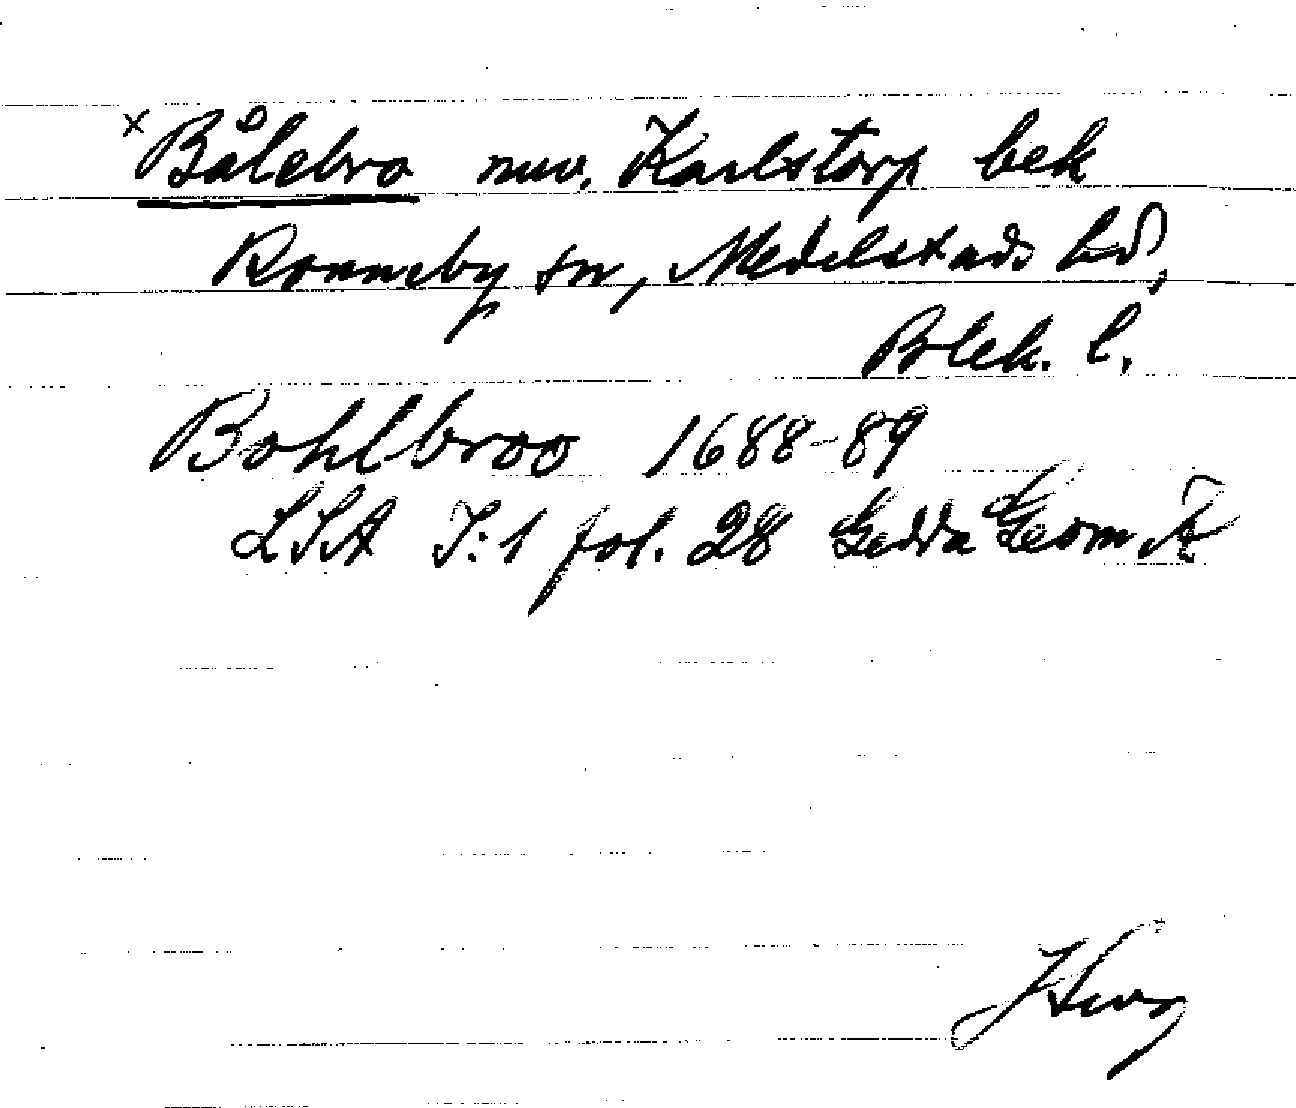 x Bålebro nuv. Karlstorp bek
Ronneby sn, Medelstads hd,
Blek. l.
Bohlbroo 1688-89
LSA I:1 fol. 28 Gedda Geom